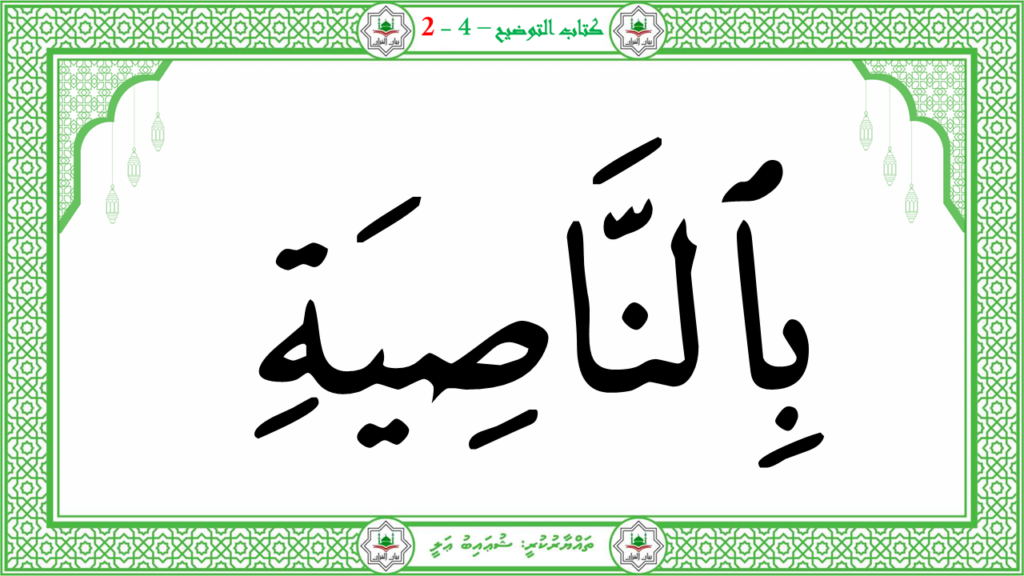 كتاب التوضيح – 4 - 2
بِٱلنَّاصِيَةِ
ތައްޔާރުކުރީ: ޝުޢައިބު ޢަލީ